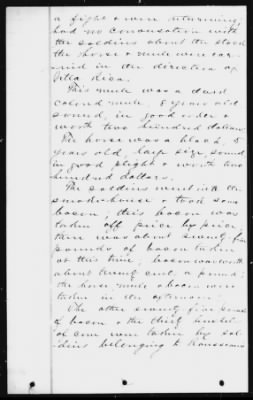 a fight & were returning,
had no conversation with
the soldiers about the stock
the horse & mule were car-
ried in the direction of
Villa Rica.
This mule was a dark
colored mule, 8 years old
sound, in good order &
worth two hundred dollars.
The horse was a black, 8
years old, large size, sound
in good plight & worth two
hundred dollars.
The soldiers went into the
smoke-house & took some
bacon; this bacon was
taken off piece by piece
there was about seventy five
pounds of bacon taken
at this time; bacon was worth
about twenty cents a pound;
the horse, mule & bacon were
taken in the afternoon.
The other seventy five pounds
of bacon & the thirty bushels
of corn were taken by sol-
diers belonging to Rousseau's